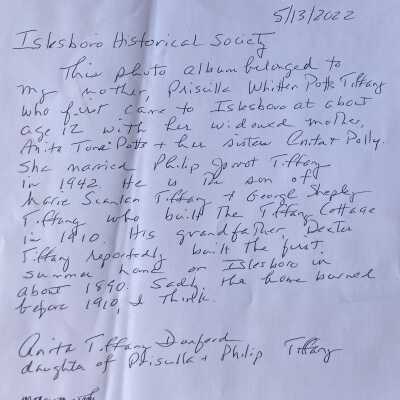 5/13/2022
Islesboro Historical Society
This photo album belonged to
my mother, Priscilla Whitten Potts Tiffany
who first came to Islesboro at about
age 12 with her widowed mother,
Anita Potts + her sisters Anita + Polly.
She married Philip Tiffany
in 1942. He is the son of
Marie Scanlan Tiffany + George Shepley
Tiffany who built The Tiffany Cottage
in 1910. His grandfather, Dexter
Tiffany reportedly built the first
summer home on Islesboro in
about 1890. Sadly, the home burned
before 1910, I think.
Anita Tiffany Danford
daughter of Priscilla + Philip Tiffany